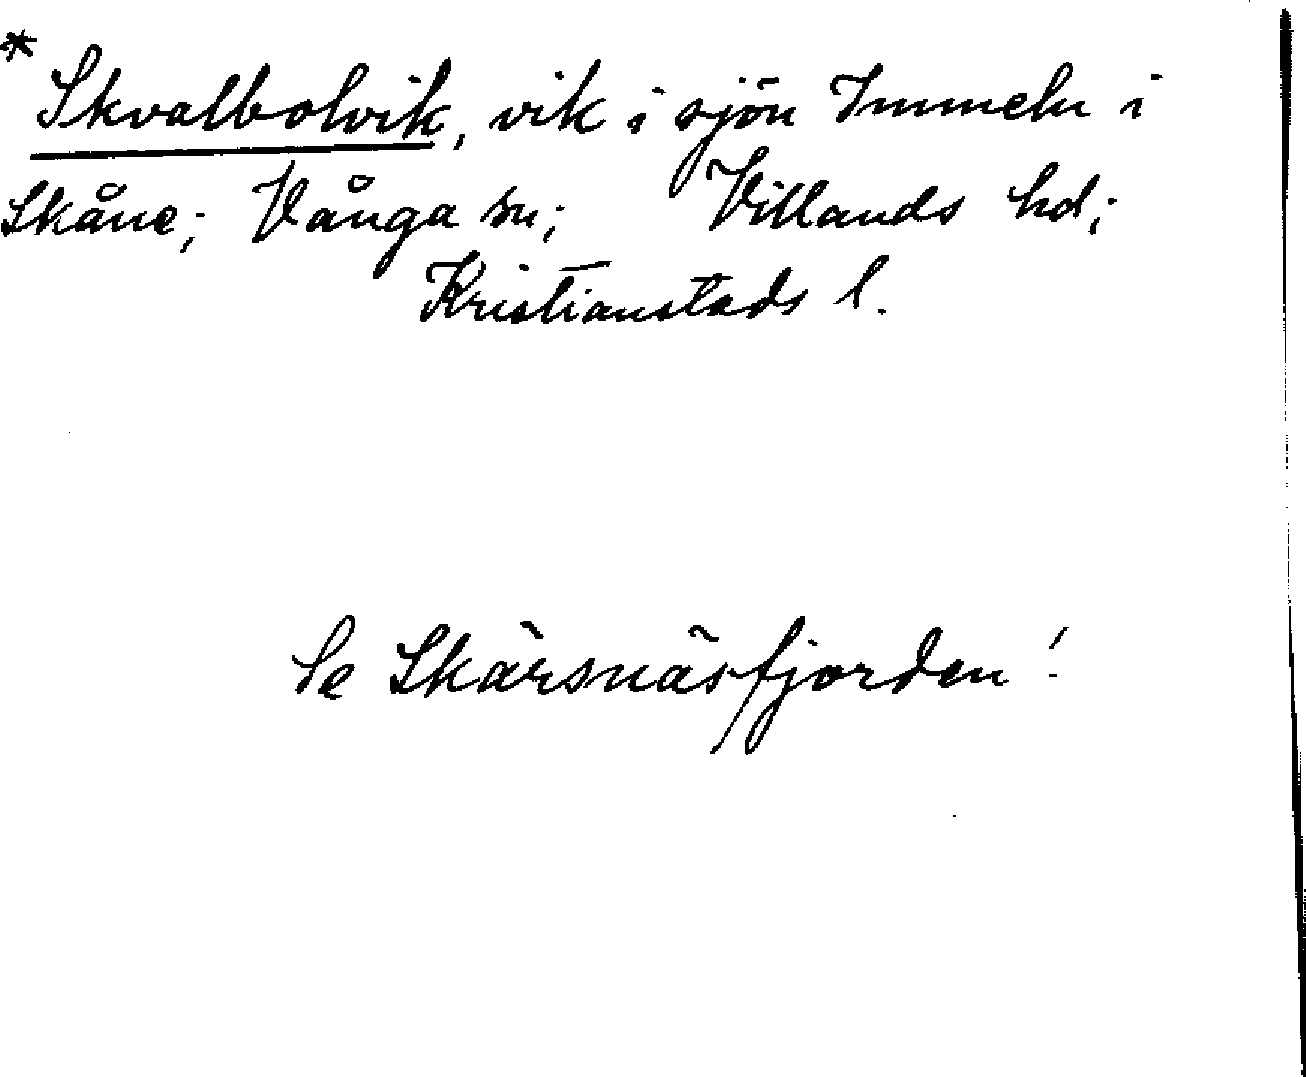 * Skvalbolvik, vik i sjön Immeln i
Skåne; Vånga sn; Villands hd;
Kristianstads l.
Se Skärsnäsfjorden!